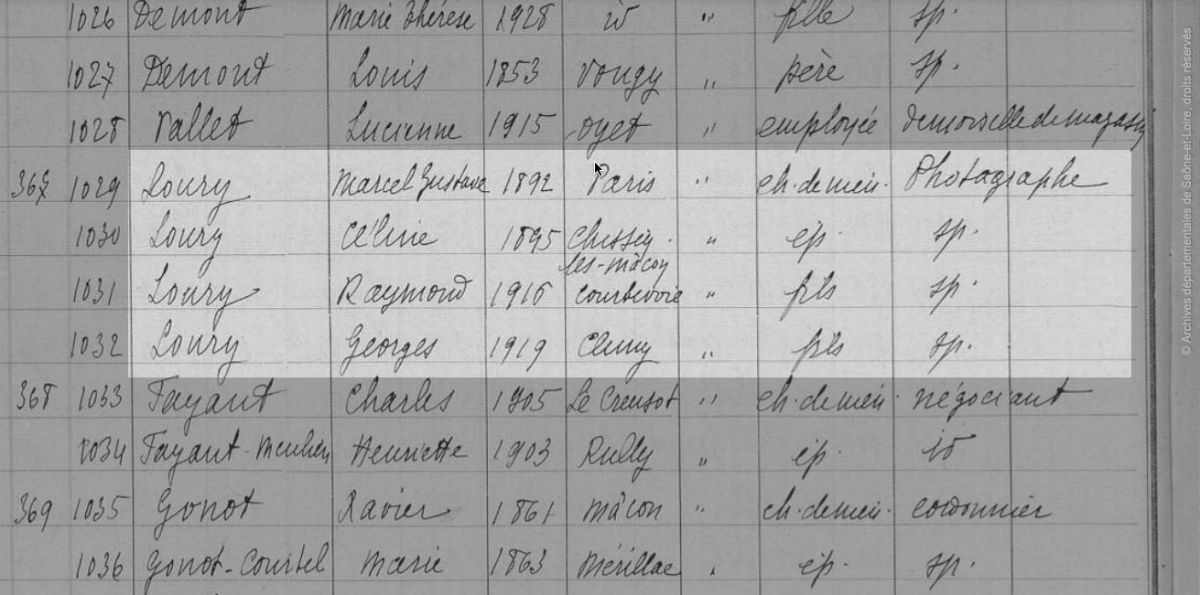 1026 Demont Marie Thérèse 1928 id " fille sp.
1027 Demont Louis 1853 Vougy " père sp.
1028 Vallet Lucienne 1915 oyet " employée demoiselle de magasin
367 1029 Loury Marcel Gustave 1892 Paris " ch. de mén. Photographe
1030 Loury Céline 1895 Chissey- " ép. sp.
les-mâcon
1031 Loury Raymond 1916 Courbevoie " fils sp.
1032 Loury Georges 1919 Cluny " fils sp.
368 1033 Fayant Charles 1905 Le Creusot " ch. de mén. négociant
1034 Fayant- Henriette 1903 Rully " ép. id
369 1035 Gonot Xavier 1861 mâcon " ch. de mén. cordonnier
1036 Gonot-Courtel Marie 1863 " ép. sp.
© Archives départementales de Saône-et-Loire, droits réservés